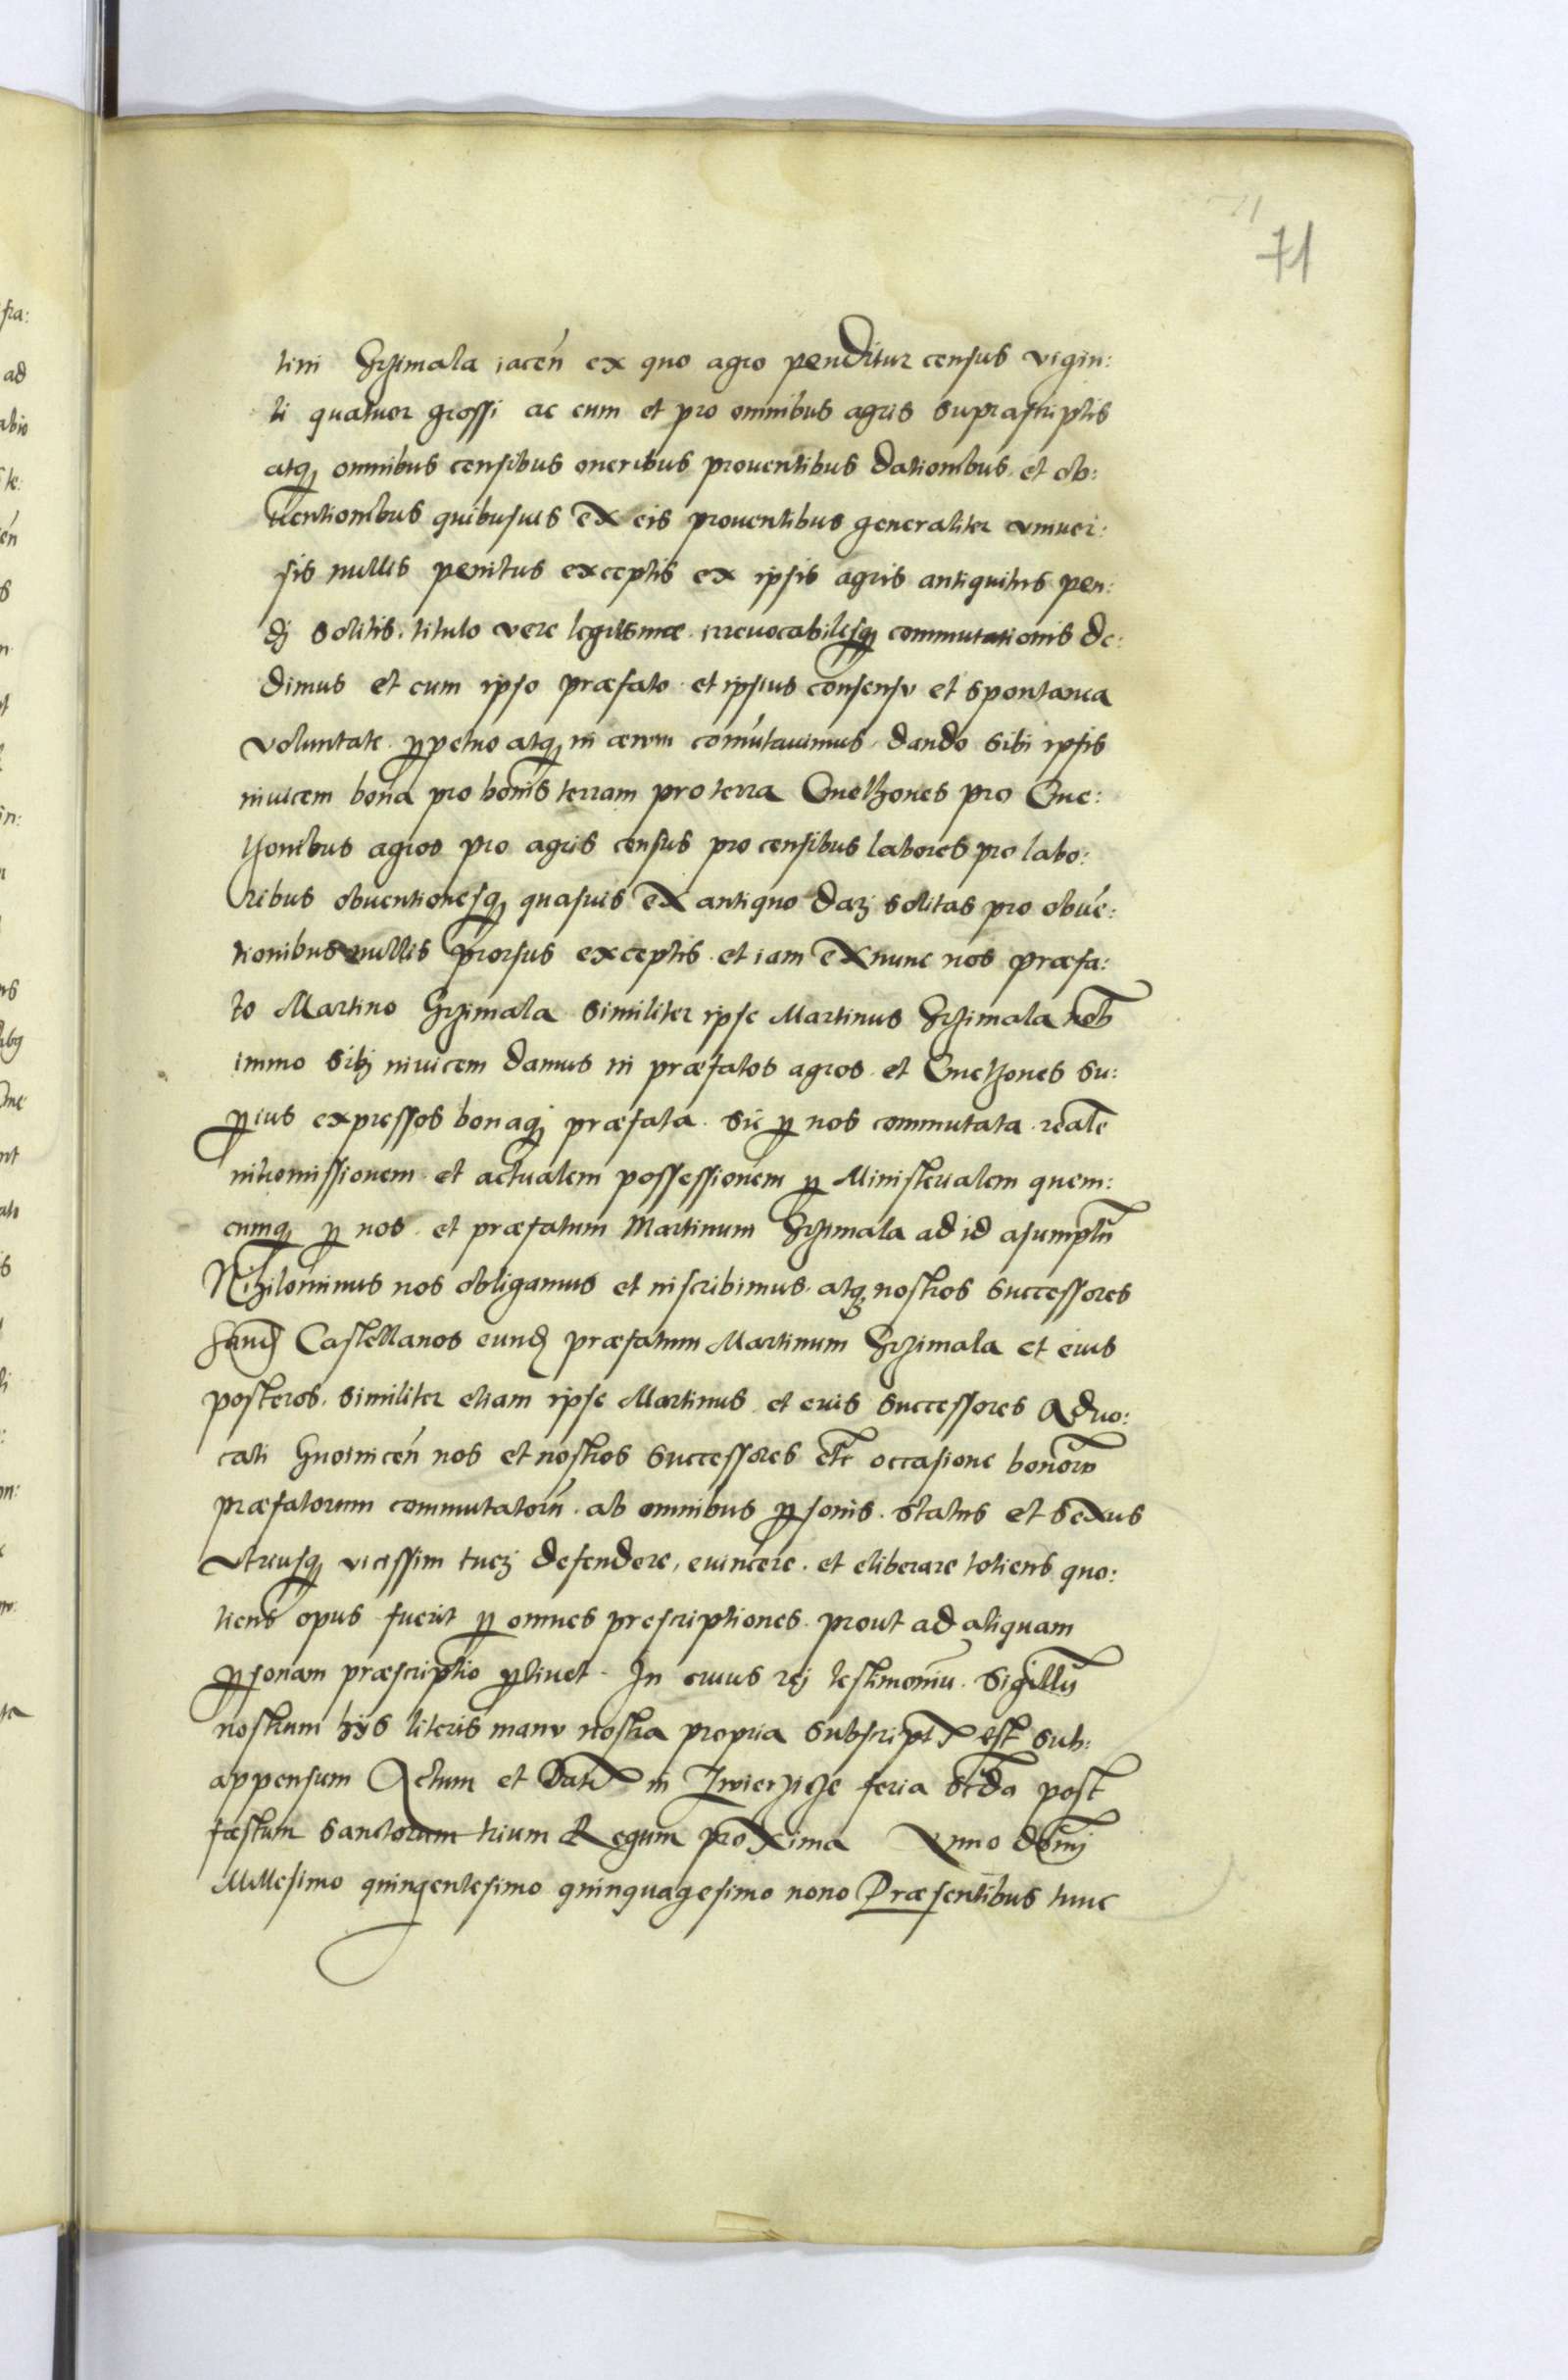 71
tini Grzimala iacen̄ ex quo agro penditur census vigin:
ti quatuor grossi ac cum et pro omnibus agris suprascriptis
atq₃ omnibus censibus oneribus prouentibus dationibus et ob:
uentionibus quibusuis ex eis prouentibus generaliter vniuer:
sis nullis penitus exceptis ex ipsis agris antiquitus pen:
dj solitis. titulo vere legitimæ irreuocabilesq₃ commutationis de:
dimus et cum ipso præfato et ipsius consensu et spontanea
voluntate ꝑpetuo atq₃ in æuum com̄utauimus dando sibi ipsis
inuicem bona pro bonis terram pro terra Cmethones pro Cme:
thonibus agros pro agris census pro censibus labores pro labo:
ribus obuentionesq₃ quasuis ex antiquo darj solitas pro obuē:
tionibus nullis prorsus exceptis et iam ex nunc nos præfa:
to Martino Grzimala similiter ipse Martinus Grzimala nob
immo sibj inuicem damus in præfatos agros et Cmethones su:
ꝑius expressos bonaq₃ præfata. sic ꝑ nos commutata. reale
intromissionem et actualem possessionem ꝑ Ministerialem quem:
cunq₃ ꝑ nos et præfatum Martinum Grzimala ad id asumptū
Nihilominus nos obligamus et inscribimus. atq₃ nostros successores
Castellanos eund præfatum Martinum Grzimala et eius
posteros. similiter etiam ipse Martinus et eius successores Aduo:
cati Gnoinicen̄ nos et nostros successores etc occasione bonorū
præfatorum commutatorū. ab omnibus ꝑsonis. status et sexus
vtriusq₃ vicissim tuerj defendere, euincere. et eliberare totiens quo:
tiens opus fuerit ꝑ omnes prescriptiones. prout ad aliquam
ꝑsonam præscriptio ꝑtinet. In cuius rej testimoniū. sigillū
nostrum hijs literis manu nostra propria subscript est sub:
appensum Actum et Dat in Zwierzicze feria scda post
fæstum sanctorum trium Regum proxima Anno dōmj
Millesimo quingentesimo quinquagesimo nono Præsentibus tunc